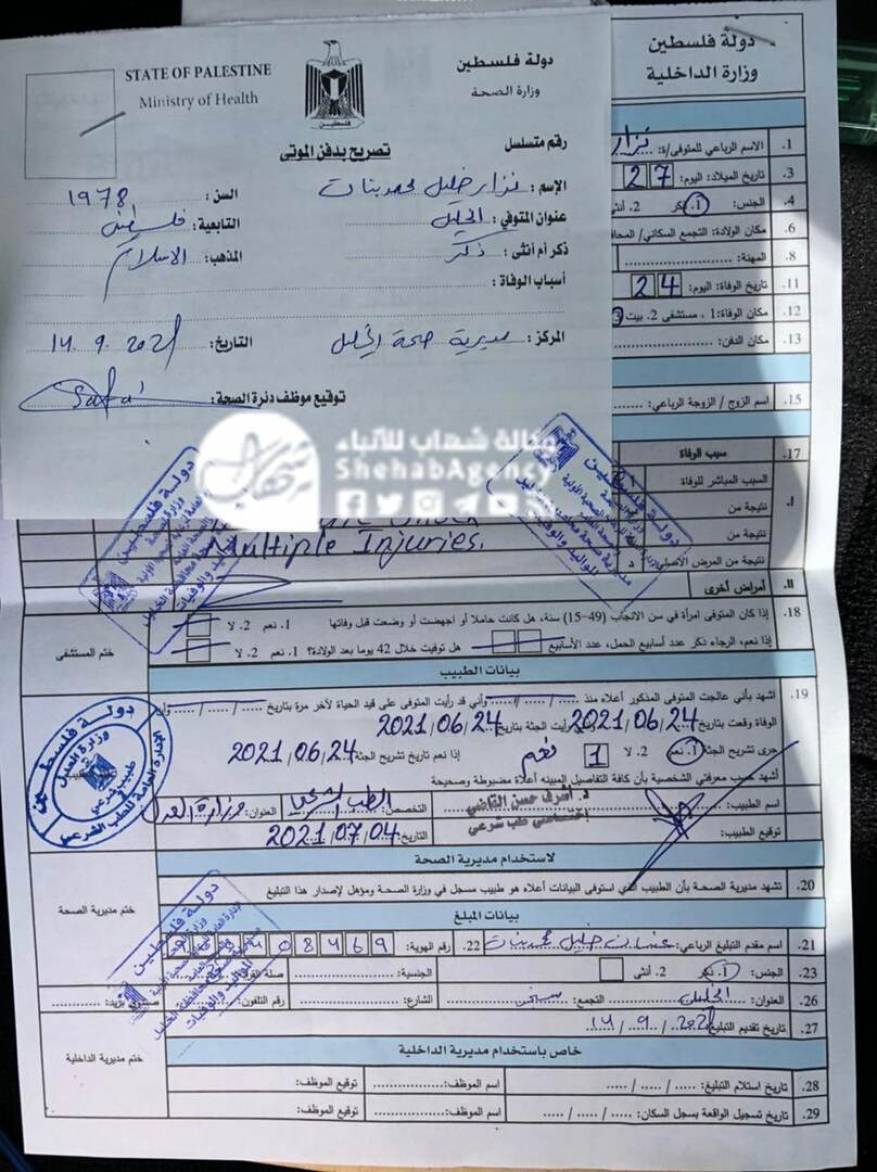 STATE OF PALESTINE
Ministry of Health
دولة فلسطين
وزارة الصحة
فلسطين
تصريح بدفن الموتى
رقم متسلسل
الإسم : نزار خليل محمد بنات
السن : 1978
عنوان المتوفي : الخليل
التابعية : فلسطين
ذكر أم أنثى : ذكر
المذهب: الاسلام
أسباب الوفاة :
المركز: مديرية صحة الخليل
التاريخ: 14. 9. 2021
توقيع موظف دئرة الصحة: Safa'
وكالة شهاب للأنباء
ShehabAgency
دولة فلسطين
وزارة الداخلية
1. الاسم الرباعي للمتوفى/ة: نزار
3. تاريخ الميلاد: اليوم: 27
4. الجنس: 1. ذكر 2. أنثى
6. مكان الولادة: التجمع السكاني/
8. المهنة:
11. تاريخ الوفاة: اليوم: 24
12. مكان الوفاة: 1. مستشفى 2. بيت 3
13. مكان الدفن:
15. اسم الزوج / الزوجة الرباعي:
17. سبب الوفاة
السبب المباشر للوفاة
I. نتيجة من
نتيجة من
Multiple Injuries.
د نتيجة من المرض الأصلي
II. أمراض أخرى
18. إذا كان المتوفى امرأة في سن الانجاب (49-15) سنة، هل كانت حاملا أو اجهضت أو وضعت قبل وفاتها 1. نعم 2. لا
إذا نعم، الرجاء ذكر عدد أسابيع الحمل، عدد الأسابيع هل توفيت خلال 42 يوما بعد الولادة؟ 1. نعم 2. لا
ختم المستشفى
بيانات الطبيب
19. اشهد بأني عالجت المتوفى المذكور أعلاه منذ ..... / ..... / ..... وأني قد رأيت المتوفى على قيد الحياة لآخر مرة بتاريخ ..... / ..... / ..... وأن
الوفاة وقعت بتاريخ 2021/06/24 رأيت الجثة بتاريخ 2021/06/24
جرى تشريح الجثة 1. نعم 2. لا 1 نعم إذا نعم تاريخ تشريح الجثة 2021/06/24
أشهد حسب معرفتي الشخصية بأن كافة التفاصيل المبينه أعلاه مضبوطة وصحيحة
اسم الطبيب: د. أشرف حسن القاضي التخصص: الطب الشرعي العنوان: وزارة العدل
إختصاصي طب شرعي
توقيع الطبيب: التاريخ: 2021/07/04
دولة فلسطين
وزارة العدل
طبيب شرعي
الإدارة العامة للطب الشرعي
لاستخدام مديرية الصحة
20. تشهد مديرية الصحة بأن الطبيب الذي استوفى البيانات أعلاه هو طبيب مسجل في وزارة الصحة ومؤهل لإصدار هذا التبليغ
ختم مديرية الصحة
بيانات المبلغ
21. اسم مقدم التبليغ الرباعي: خليل محمد بنات 22. رقم الهوية: 08469
23. الجنس: 1. ذكر 2. أنثى الجنسية: صلة القرابة
26. العنوان: الخليل التجمع: الشارع: رقم التلفون:
27. تاريخ تقديم التبليغ 14 / 9 / 2021
دولة فلسطين
خاص باستخدام مديرية الداخلية
ختم مديرية الداخلية
28. تاريخ استلام التبليغ: ..... / ..... / ..... اسم الموظف: توقيع الموظف:
29. تاريخ تسجيل الواقعة بسجل السكان: ..... / ..... / ..... اسم الموظف: توقيع الموظف: